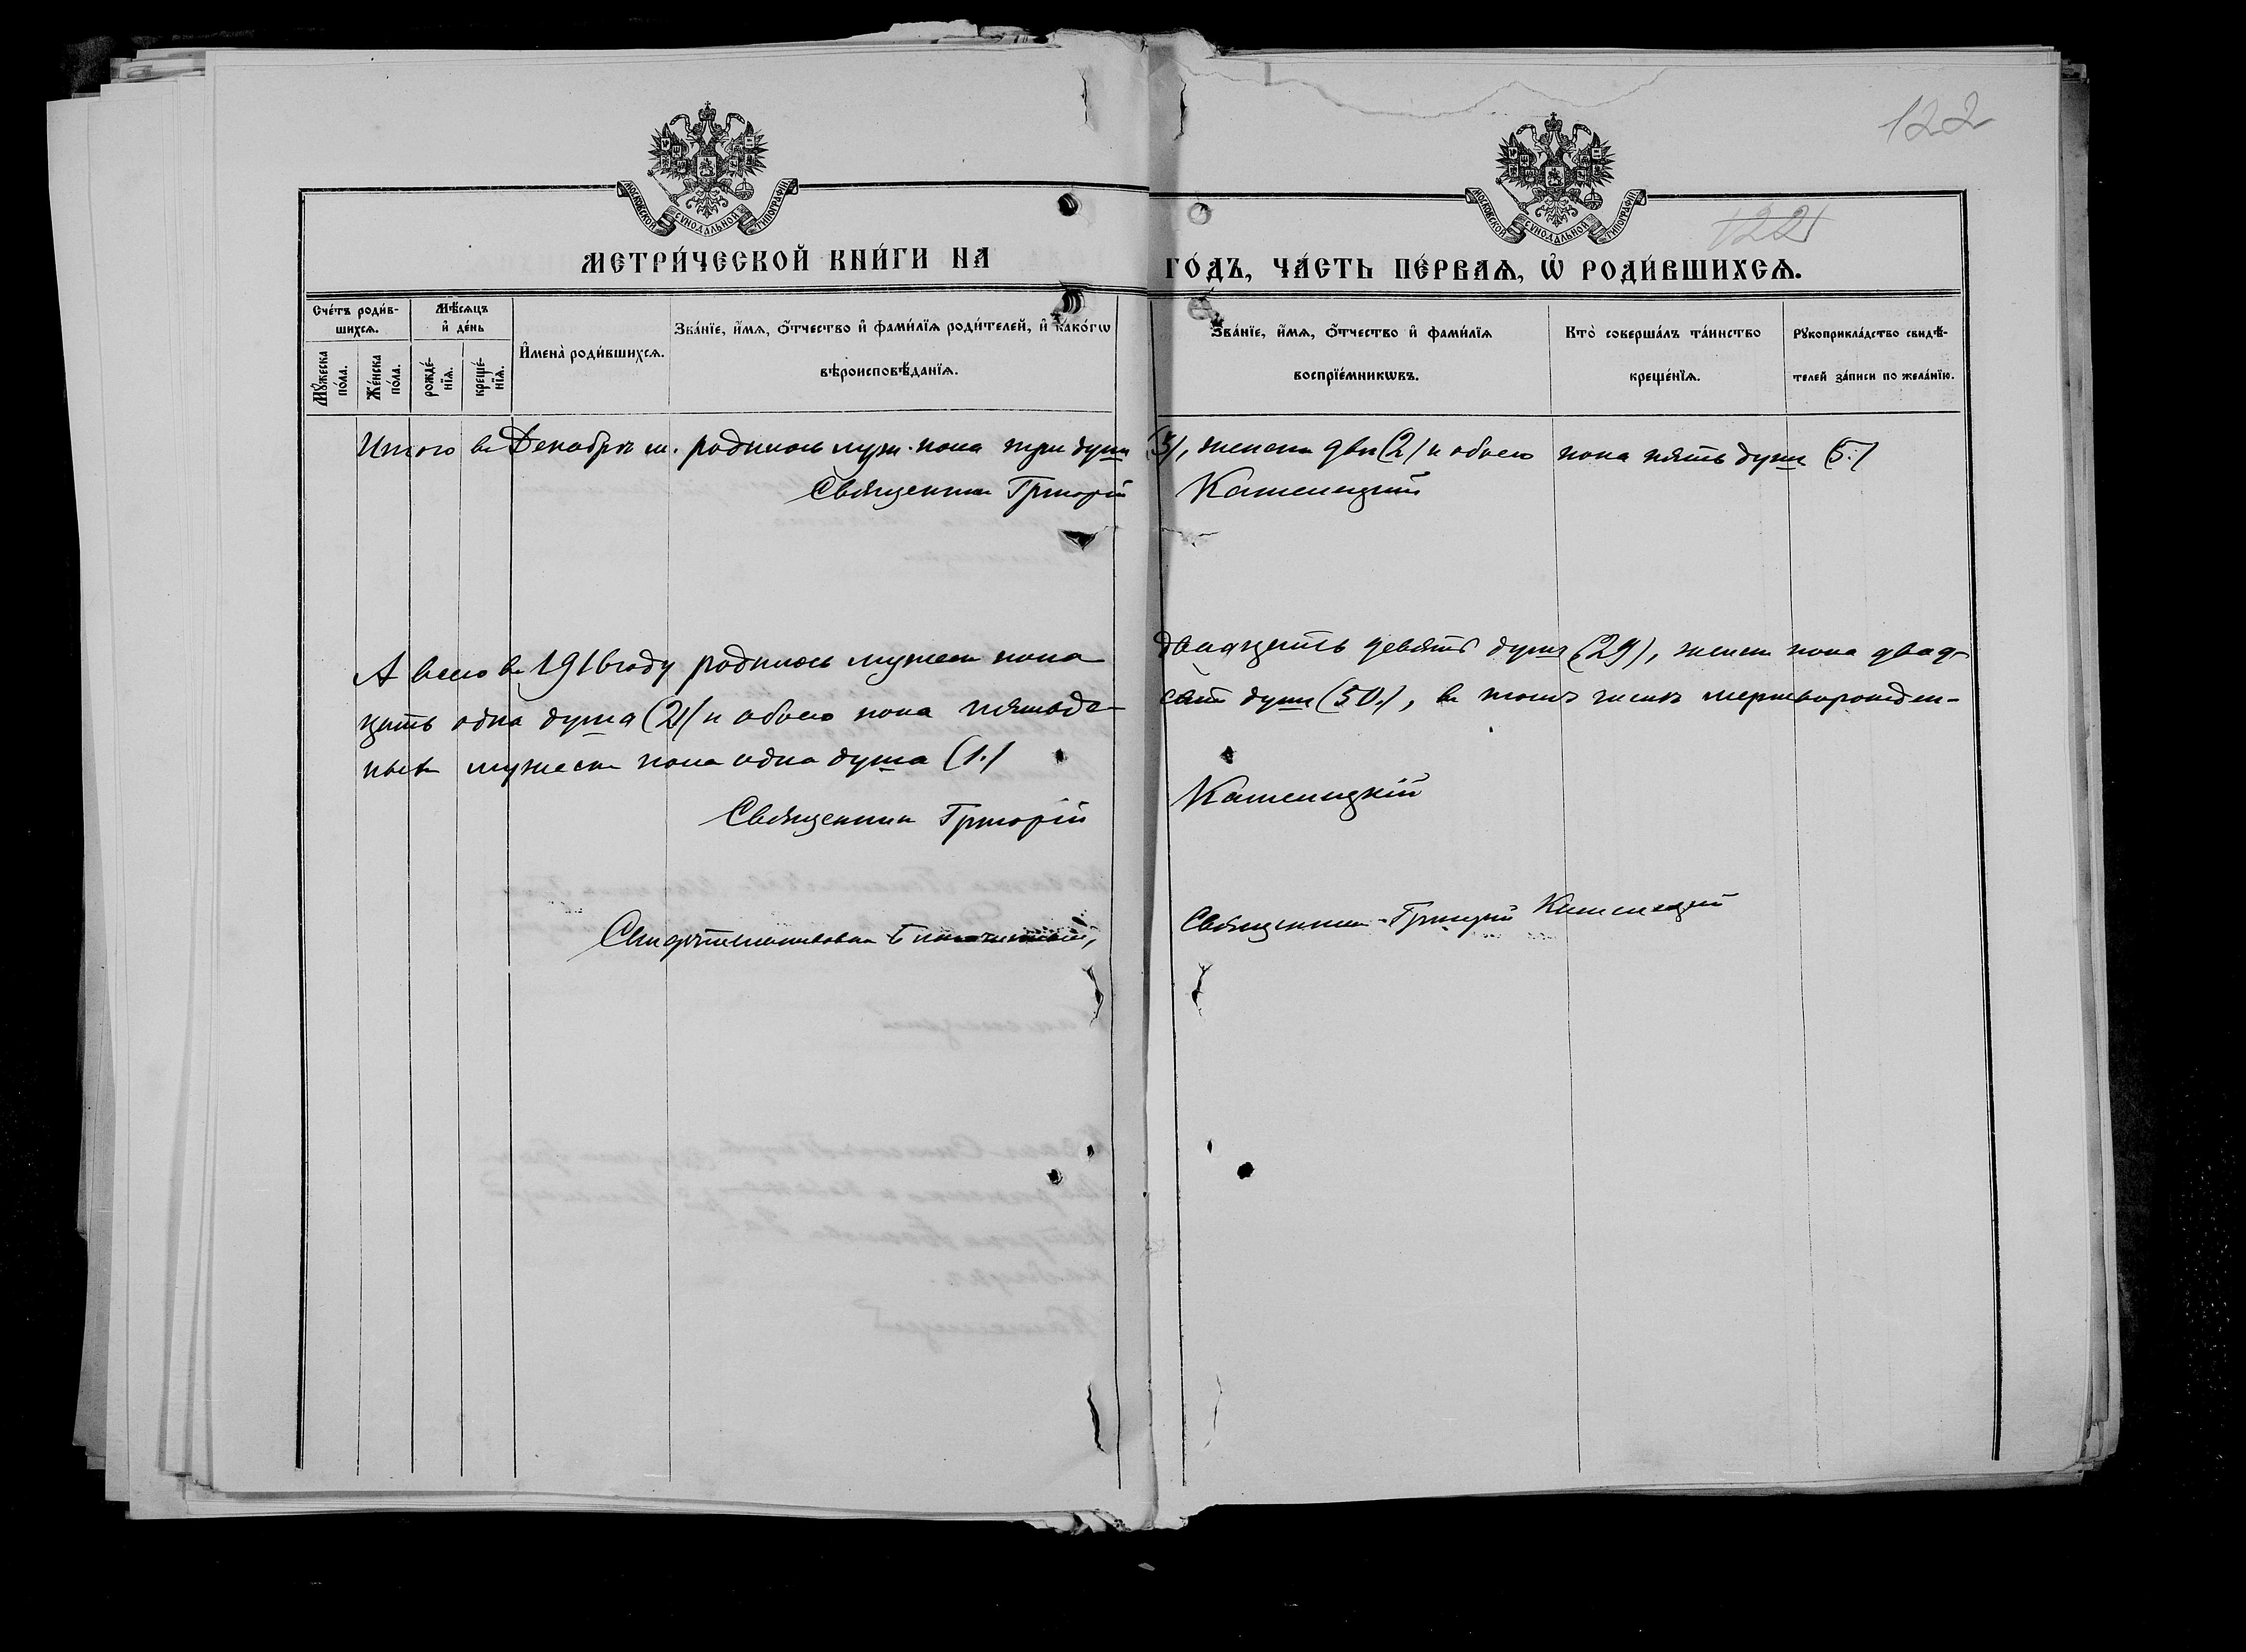 122
МОСКОВСКОЙ СѴНОДАЛЬНОЙ ТИПОГРАФІИ
МОСКОВСКОЙ СѴНОДАЛЬНОЙ ТИПОГРАФІИ
122
МЕТРИ́ЧЕСКОЙ КНИ́ГИ НА ГО́ДЪ, ЧА́СТЬ ПЕ́РВАѦ, Ѡ҆ РОДИ́ВШИХСѦ.
Сче́тъ роди́в-
шихсѧ.
Мꙋ́жеска по́ла.
Же́нска по́ла.
Мѣ́сѧцъ
и҆ де́нь
рожде́-
нїѧ.
креще́-
нїѧ.
И҆мена̀ роди́вшихсѧ.
Зва́нїе, и҆́мѧ, ѻ҆́тчество и҆ фами́лїѧ роди́телей, и҆ како́гѡ
вѣроисповѣ́данїѧ.
Зва́нїе, и҆́мѧ, ѻ҆́тчество и҆ фами́лїѧ
воспрїе́мникѡвъ.
Кто̀ соверша́лъ та́инство
креще́нїѧ.
Рꙋкоприкла́дство свидѣ́-
телей за́писи по жела́нїю.
Итого въ Декабрѣ м. родилось муж. пола три души (3), женска двѣ (2) и обоего пола пять душъ (5.)
Священникъ Григорій Каменецкій
А всего въ 1916 году родилось мужеск пола двадцать девять душъ (29), женск пола двад-
цать одна душа (21) и обоего пола пятьде- сятъ душъ (50.), въ томъ числѣ мертворожден-
ныхъ мужеска пола одна душа (1.)
Священникъ Григорій Каменецкій
Священникъ Григорій Каменецкій